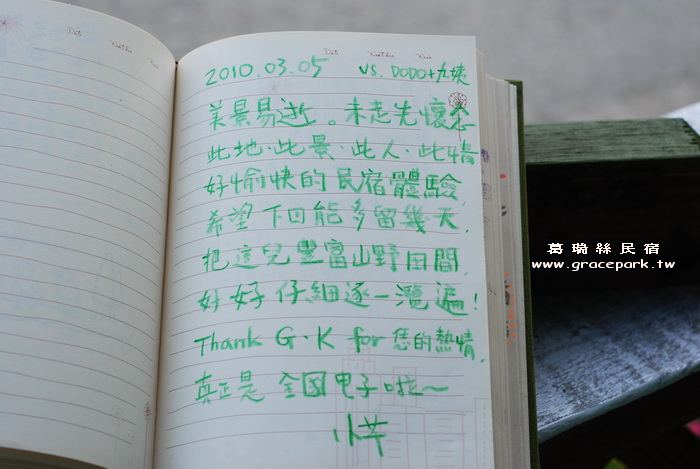 Date Weather Week
2010.03.05 VS. DODO+九姨
美景易逝。未走先懷念
此地·此景·此人·此情
好愉快的民宿體驗,
希望下回能多留幾天,
把這兒豐富山野田間,
好好仔細逐一灠遍!
Thank G·K for 您的熱情,
真正是 全國电子啦~
小芊
葛瑞絲民宿
www.gracepark.tw